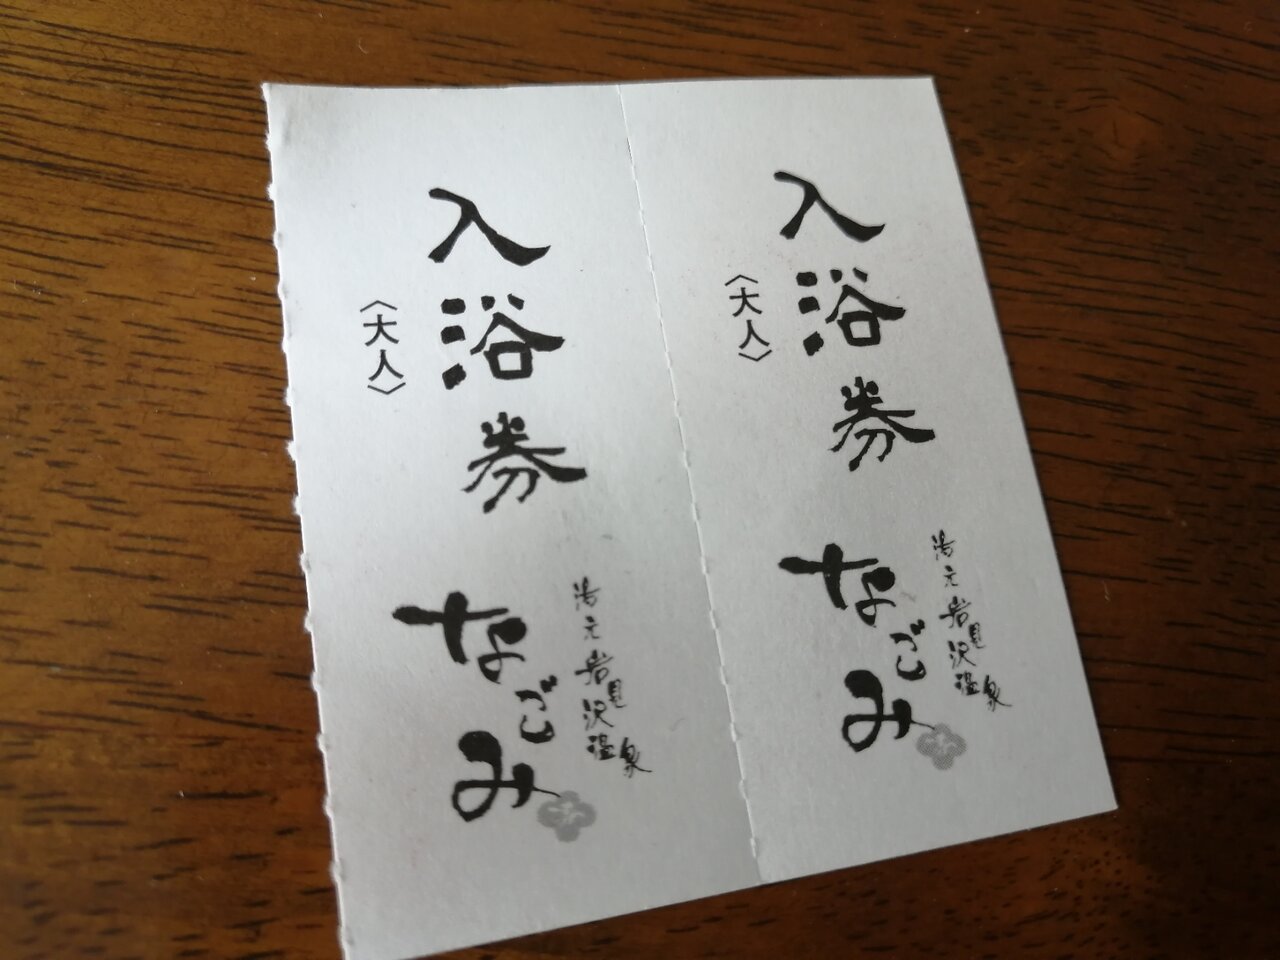 入浴券
〈大人〉
湯元岩見沢温泉
なごみ
入浴券
〈大人〉
湯元岩見沢温泉
なごみ